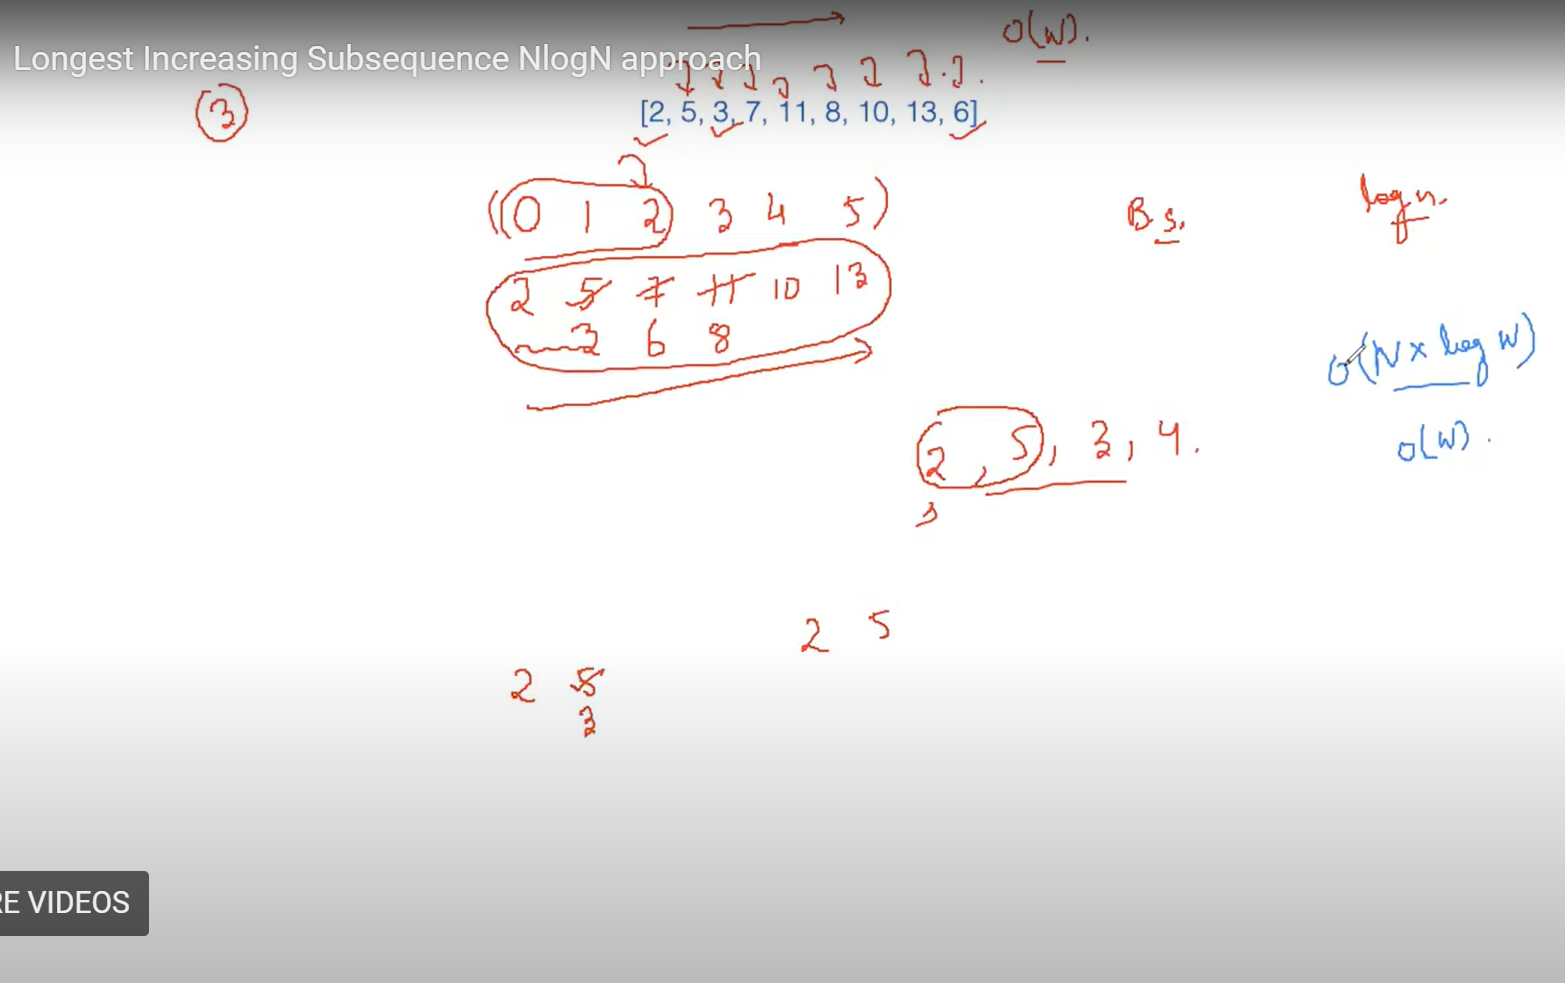 O(N).
Longest Increasing Subsequence NlogN approach
3
[2, 5, 3, 7, 11, 8, 10, 13, 6]
0 1 2 3 4 5
B.S. log n.
2 5 7 11 10 13
3 6 8
O(N x log N)
2, 5, 3, 4.
O(N).
2 5
2 5
3
RE VIDEOS